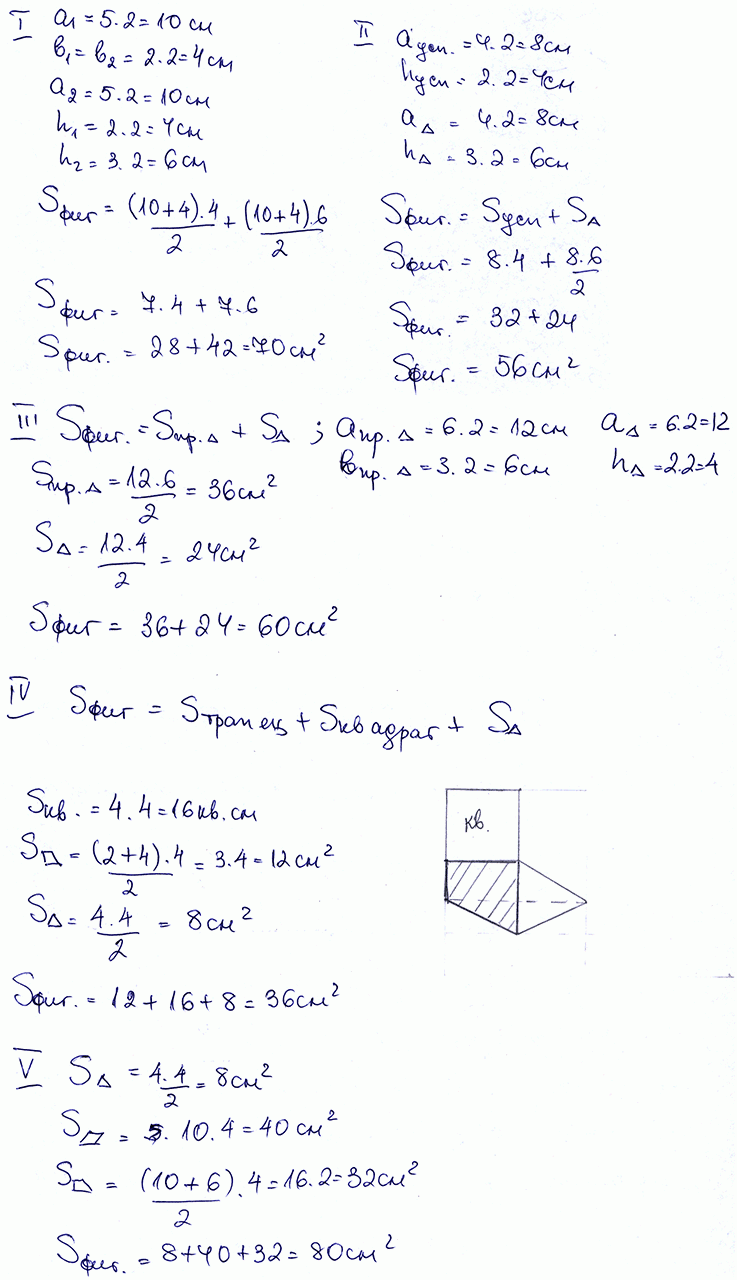 I a₁ = 5.2 = 10 см
в₁ = в₂ = 2.2 = 4 см
a₂ = 5.2 = 10 см
h₁ = 2.2 = 4 см
h₂ = 3.2 = 6 см
Sфиг = (10+4).4/2 + (10+4).6/2
Sфиг = 7.4 + 7.6
Sфиг. = 28 + 42 = 70 см²
II aусп. = 4.2 = 8 см
hусп = 2.2 = 4 см
a△ = 4.2 = 8 см
h△ = 3.2 = 6 см
Sфиг. = Sусп + S△
Sфиг. = 8.4 + 8.6/2
Sфиг. = 32 + 24
Sфиг. = 56 см²
III Sфиг. = Sпр.△ + S△ ; aпр.△ = 6.2 = 12 см a△ = 6.2 = 12
впр.△ = 3.2 = 6 см h△ = 2.2 = 4
Sпр.△ = 12.6/2 = 36 см²
S△ = 12.4/2 = 24 см²
Sфиг = 36 + 24 = 60 см²
IV Sфиг = Sтрапец + Sквадрат + S△
Sкв. = 4.4 = 16 кв. см
S⏢ = (2+4).4/2 = 3.4 = 12 см²
S△ = 4.4/2 = 8 см²
Sфиг. = 12 + 16 + 8 = 36 см²
кв.
V S△ = 4.4/2 = 8 см²
S▱ = 10.4 = 40 см²
S⏢ = (10+6)/2 .4 = 16.2 = 32 см²
Sфиг. = 8 + 40 + 32 = 80 см²